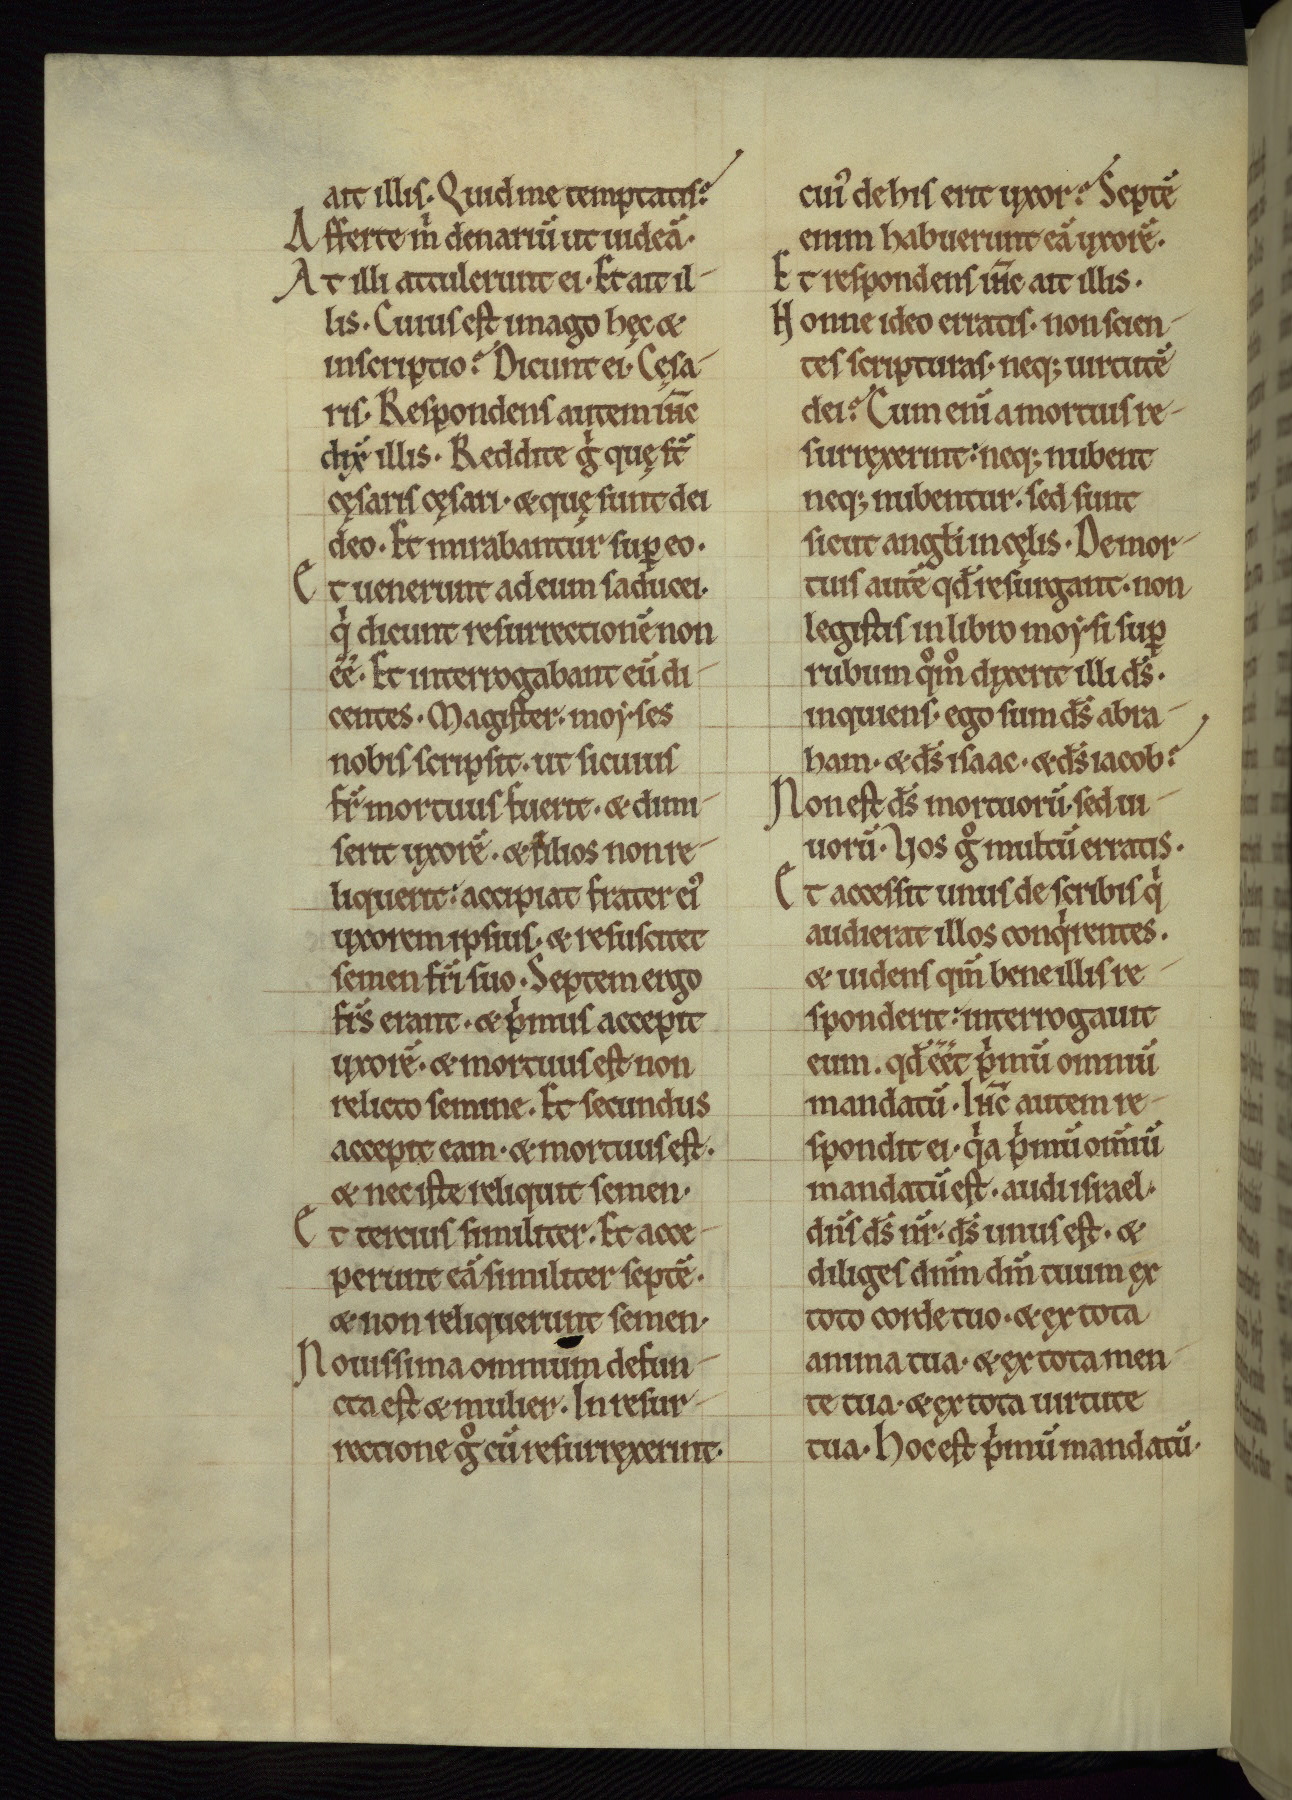 ait illis. Quid me temptatis?
Afferte m̄ denariū ut uideā.
At illi attulerunt ei. Et ait il-
lis. Cuius est imago hęc &
inscriptio? Dicunt ei. Cęsa-
ris. Respondens autem ih̄c
dix̄ illis. Reddite gͥ quę st̄
cęsaris cęsari. & quę sunt dei
deo. Et mirabantur suꝑ eo.
Et uenerunt ad eum saducei.
qͥ dicunt resurrectionē non
ēē. Et interrogabant eū di-
centes. Magister. moẏses
nobis scripsit. ut si cuius
fr̄ mortuus fuerit. & dimi-
serit uxorē. & filios non re-
liquerit: accipiat frater eiꝰ
uxorem ipsius. & resuscitet
semen fr̄i suo. Septem ergo
fr̄s erant. & pͥmus accepit
uxorē. & mortuus est non
relicto semine. Et secundus
accepit eam. & mortuus est.
& nec iste reliquit semen.
Et tercius similiter. Et acce-
perunt eā similiter septē.
& non reliquerunt semen.
Nouissima omnium defun-
cta est & mulier. In resur-
rectione gͦ cū resurrexerint.
cuiꝰ de his erit uxor? Septē
enim habuerunt eā uxorē.
Et respondens ih̄c ait illis.
Nonne ideo erratis. non scien-
tes scripturas. neq; uirtutē
dei? Cum eni̅ a mortuis re-
surrexerint: neq; nubent
neq; nubentur. sed sunt
sicut angłi in cęlis. De mor-
tuis autē qd̄ resurgant. non
legistis in libro moẏsi suꝑ
rubum qͦmͦ dixerit illi d̄s.
inquiens. ego sum d̄s abra-
ham. & d̄s isaac. & d̄s iacob?
Non est d̄s mortuorū. sed ui-
uorū. Uos gͦ multū erratis.
Et accessit unus de scribis qͥ
audierat illos conqͥrentes.
& uidens qm̄ bene illis re-
sponderit: interrogauit
eum. qd̄ ēēt pͥmū omniū
mandatū. Ih̄c autem re-
spondit ei. qͥa pͥmū om̄iū
mandatū est. audi israel.
dn̄s d̄s nr̄. d̄s unus est. &
diliges dn̄m dm̄ tuum ex
toto corde tuo. & ex tota
anima tua. & ex tota men-
te tua. & ex tota uirtute
tua. Hoc est pͥmū mandatū.